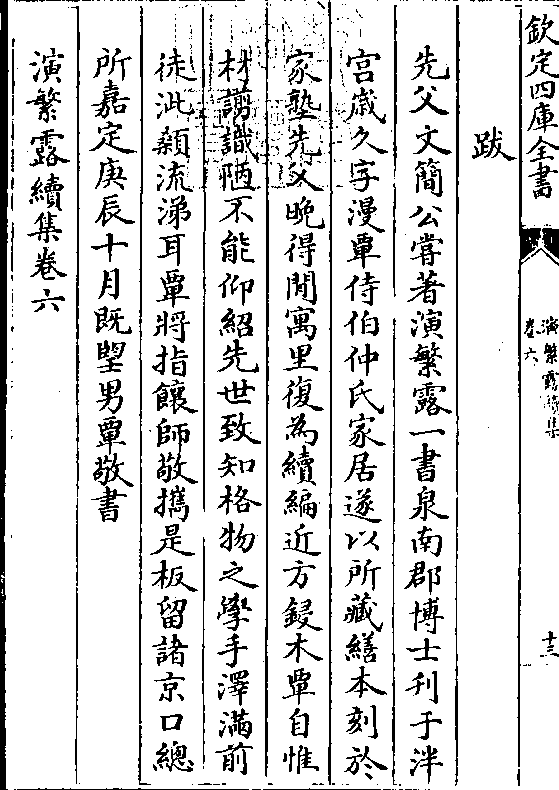 欽定四庫全書
演繁露續集
卷六
十三
跋
先父文簡公嘗著演繁露一書泉南郡博士刊于泮
宮歲久字漫覃侍伯仲氏家居遂以所藏繕本刻於
家塾先父晚得閒寓里復為續編近方鋟木覃自惟
材謭識陋不能仰紹先世致知格物之學手澤滿前
徒泚顙流涕耳覃將指饟師敬攜是板留諸京口總
所嘉定庚辰十月既朢男覃敬書
演繁露續集卷六